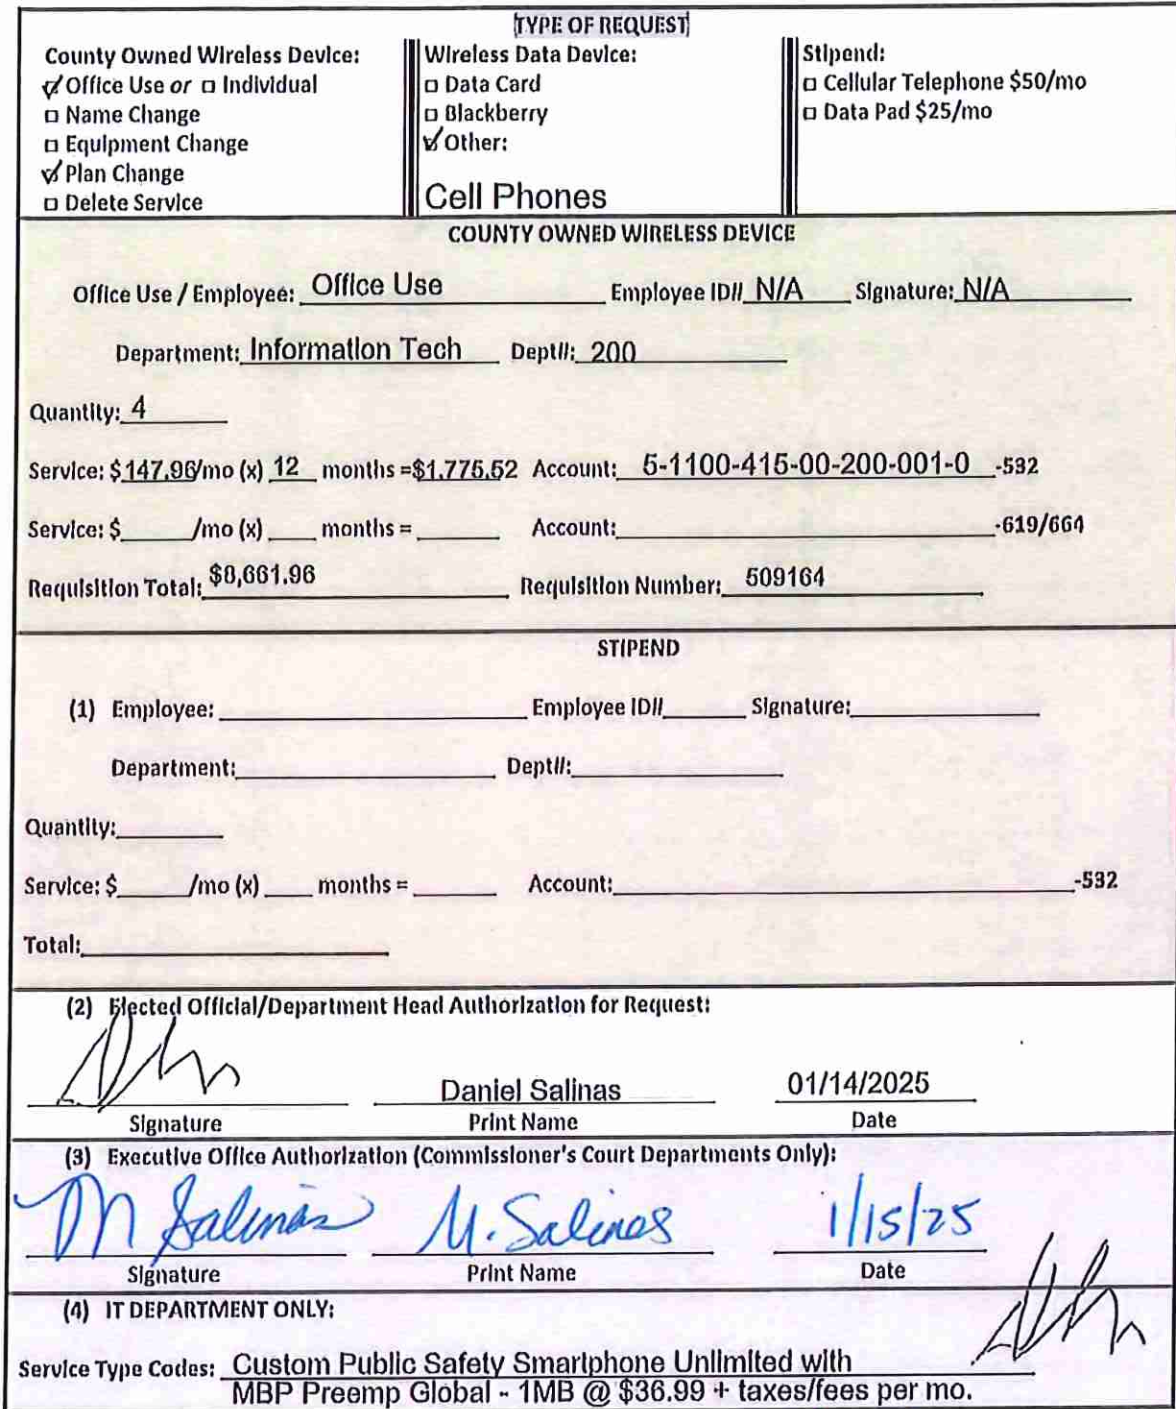 TYPE OF REQUEST
County Owned Wireless Device:
Office Use or □ Individual
□ Name Change
□ Equipment Change
Plan Change
□ Delete Service
Wireless Data Device:
□ Data Card
□ Blackberry
Other:
Cell Phones
Stipend:
□ Cellular Telephone $50/mo
□ Data Pad $25/mo
COUNTY OWNED WIRELESS DEVICE
Office Use / Employee: Office Use Employee ID# N/A Signature: N/A
Department: Information Tech Dept#: 200
Quantity: 4
Service: $147.96/mo (x) 12 months =$1,775.52 Account: 5-1100-415-00-200-001-0 -532
Service: $ /mo (x) months = Account: -619/664
Requisition Total: $8,661.96 Requisition Number: 509164
STIPEND
(1) Employee: Employee ID# Signature:
Department: Dept#:
Quantity:
Service: $ /mo (x) months = Account: -532
Total:
(2) Elected Official/Department Head Authorization for Request:
Daniel Salinas 01/14/2025
Signature Print Name Date
(3) Executive Office Authorization (Commissioner's Court Departments Only):
M Salinas M. Salinas 1/15/25
Signature Print Name Date
(4) IT DEPARTMENT ONLY:
Service Type Codes: Custom Public Safety Smartphone Unlimited with
MBP Preemp Global - 1MB @ $36.99 + taxes/fees per mo.